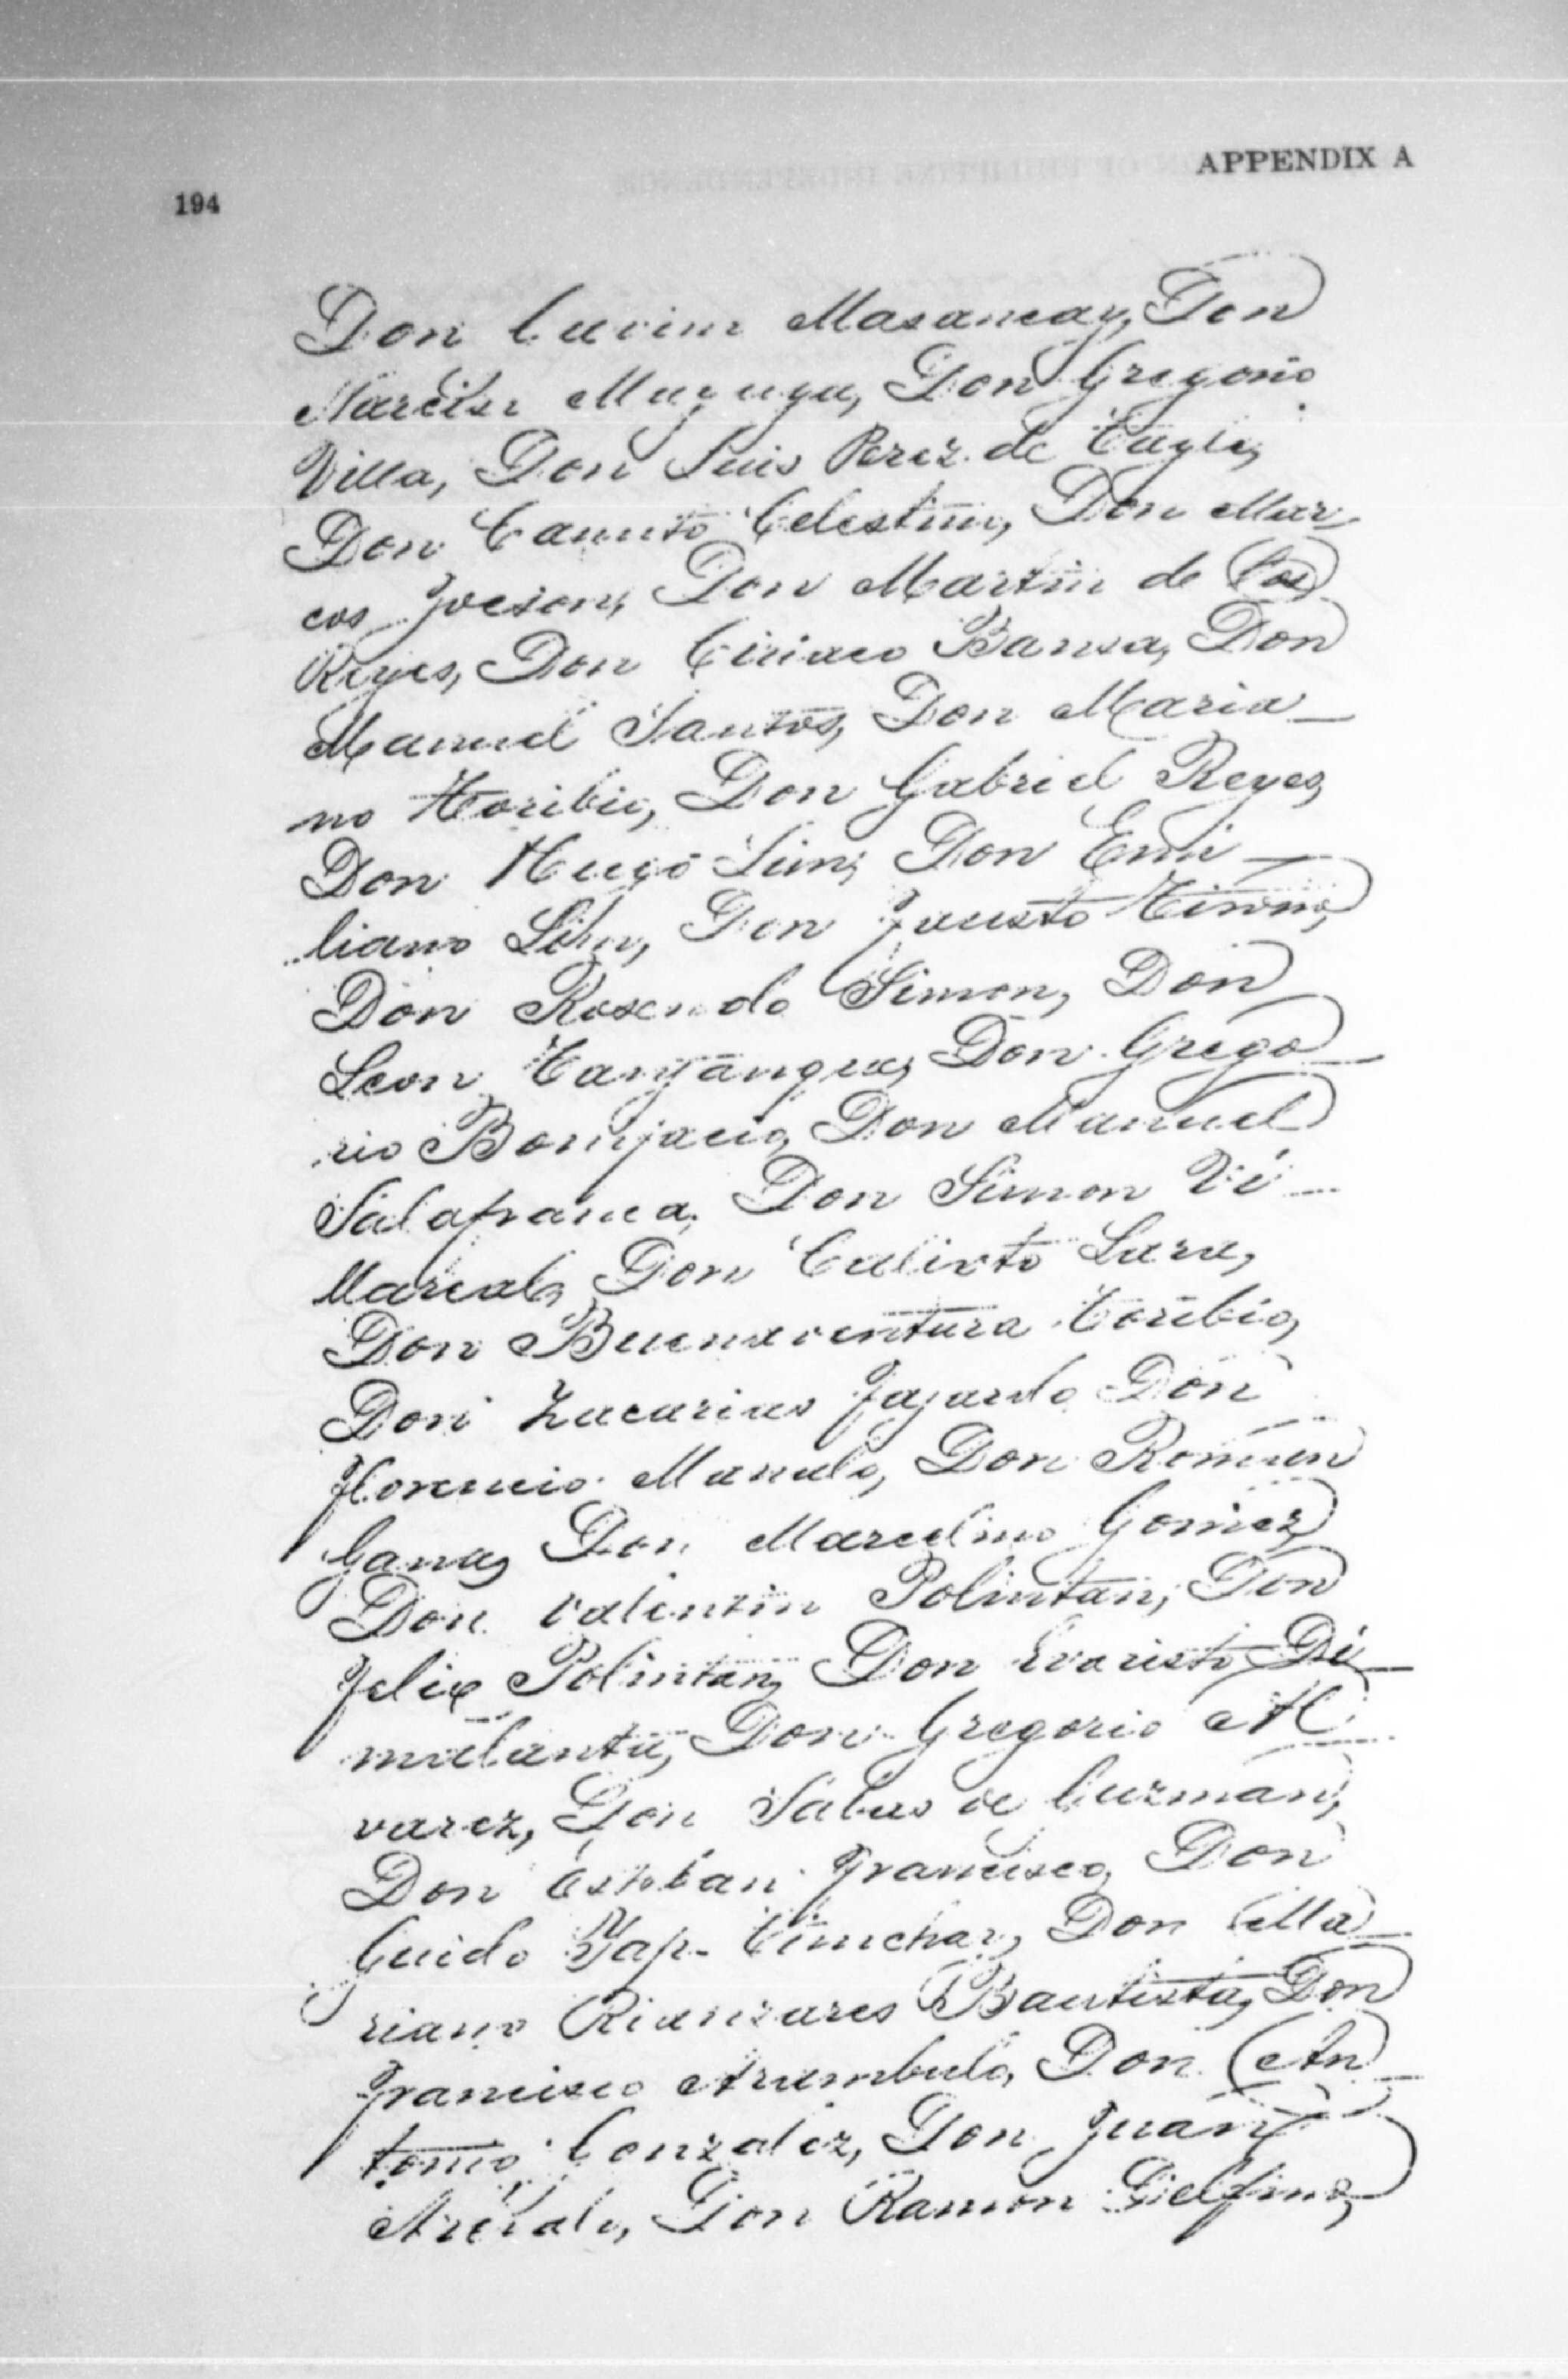 194
APPENDIX A
Don Lavim Masancay, Don
Narciso Mayuga, Don Gregorio
Villa, Don Luis Perez de Tagle,
Don Canuto Celestino, Don Mar
cos Jocson, Don Martin de los
Reyes, Don Ciriaco Bausa, Don
Manuel Santos, Don Maria_
no Toribio, Don Gabriel Reyes,
Don Hugo Lim, Don Emi_
liano Lim, Don Fausto Tinorio,
Don Rosendo Simon, Don
Leon Tanjanque, Don Grego_
rio Bonifacio, Don Manuel
Salafranca, Don Simon Vi_
llareal, Don Calixto Lara,
Don Buenaventura Toribio,
Don Zacarias Fajardo, Don
Florencio Manalo, Don Roman
Gana, Don Marcelino Gomez,
Don Valentin Polintan, Don
Felix Polintan, Don Evaristo Di_
malanta, Don Gregorio Al_
varez, Don Sabas de Guzman,
Don Esteban Francisco, Don
Guido Yap-Tinchay, Don Ma_
riano Rianzares Bautista, Don
Francisco Arambulo, Don An_
tonio Gonzalez, Don Juan
Arevalo, Don Ramon Delfino,